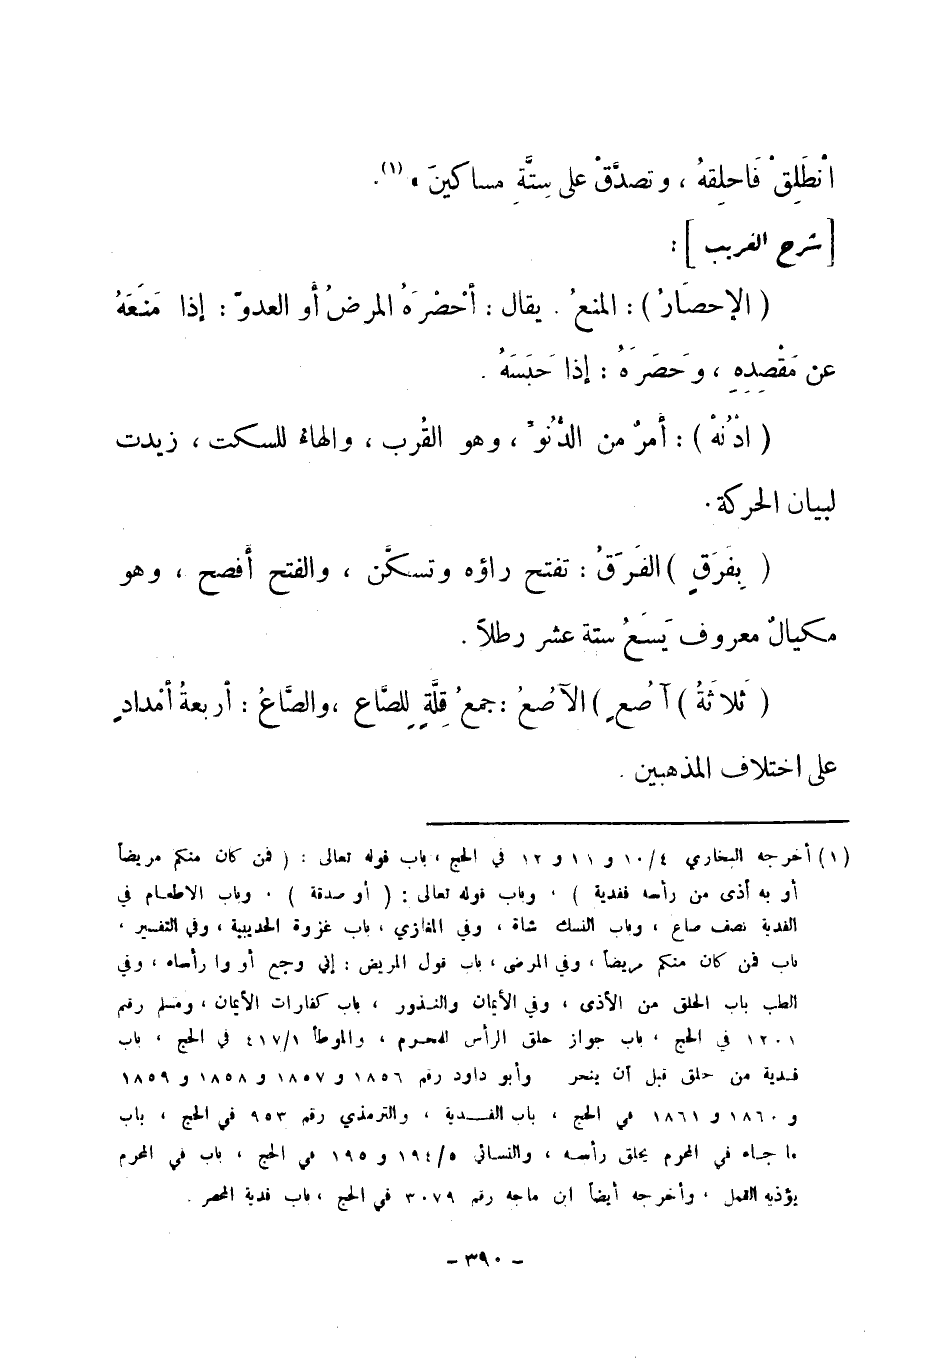 انْطَلِقْ فَاحلِقهُ ، وتصدَّقْ على سِتَّةِ مساكينَ » (١).
[ شرح الغريب ] :
( الإحصَارُ ) : المنعُ . يقال : أحْصْرَهُ المرضُ أو العدوّ : إذا مَنَعَهُ
عن مَقْصِدِهِ ، وحَصَرَهُ : إذا حَبَسَهُ .
( ادْنُهْ ) : أمرٌ من الدُّنُوِّ ، وهو القُرب ، والهاء للسكت ، زيدت
لبيان الحركة .
( بِفَرَقٍ ) الفَرَقُ : تفتح راؤه وتسكَّن ، والفتح أفصح ، وهو
مكيالٌ معروف يَسَعُ ستة عشر رطلاً .
( ثَلاثَةُ ) آصُعٍ ) الآصُعُ : جمعُ قِلَّةٍ لِلصَّاعِ ، والصَّاعُ : أربعةُ أمْدادٍ
على اختلاف المذهبين .
(١) أخرجه البخاري ١٠/٤ و ١١ و ١٢ في الحج ، باب قوله تعالى : ( فمن كان منكم مريضاً
أو به أذى من رأسه ففدية ) ، وباب قوله تعالى : ( أو صدقة ) ، وباب الاطعام في
الفدية نصف صاع ، وباب النسك شاة ، وفي المغازي ، باب غزوة الحديبية ، وفي التفسير ،
باب فمن كان منكم مريضاً ، وفي المرضى ، باب قول المريض : إني وجع أو وا رأساه ، وفي
الطب باب الحلق من الأذى ، وفي الأيمان والنذور ، باب كفارات الأيمان ، ومسلم رقم
١٢٠١ في الحج ، باب جواز حلق الرأس للمحرم ، والموطأ ٤١٧/١ في الحج ، باب
فدية من حلق قبل أن ينحر وأبو داود رقم ١٨٥٦ و ١٨٥٧ و ١٨٥٨ و ١٨٥٩
و ١٨٦٠ و ١٨٦١ في الحج ، باب الفدية ، والترمذي رقم ٩٥٣ في الحج ، باب
ما جاء في المحرم يحلق رأسه ، والنسائي ١٩٤/٥ و ١٩٥ في الحج ، باب في المحرم
يؤذيه القمل ، وأخرجه أيضاً ابن ماجه رقم ٣٠٧٩ في الحج ، باب فدية المحصر .
- ٣٩٠ -